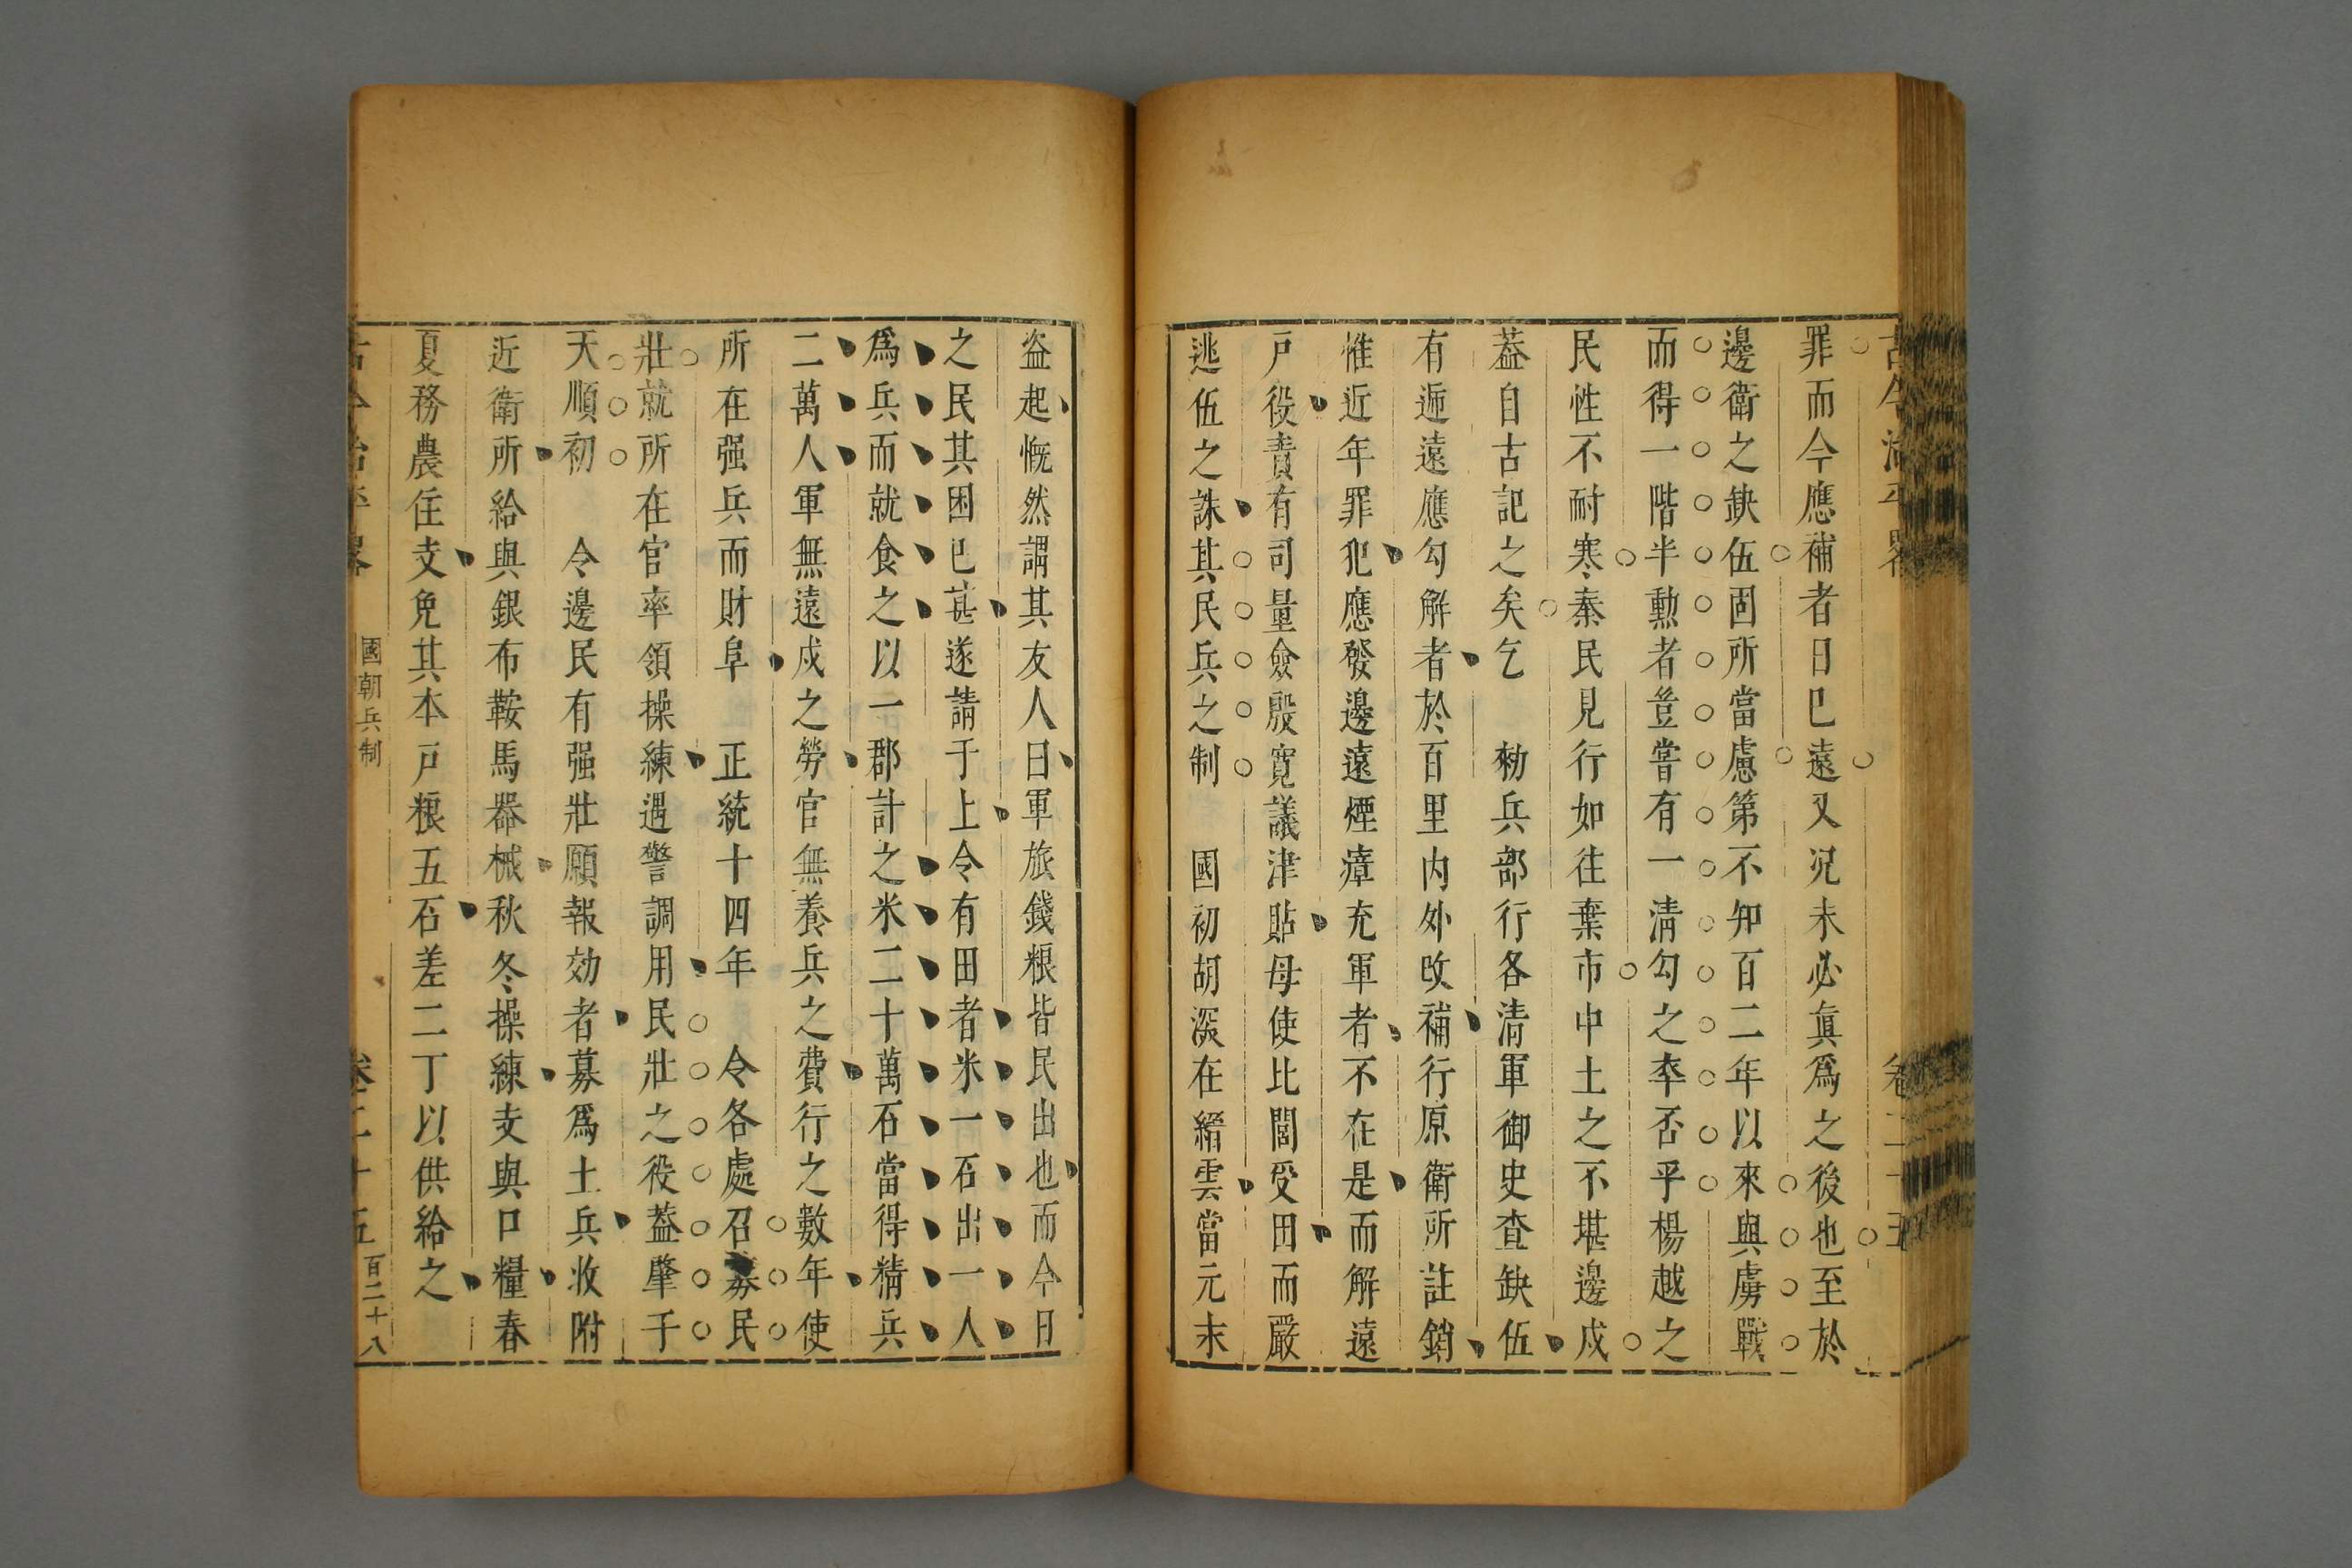 古今治平畧
卷二十五
罪而今應補者日已遠又况未必眞爲之後也至於
邊衛之缺伍固所當慮第不知百二年以來與虜戰
而得一階半勲者豈嘗有一淸勾之卒否乎楊越之
民性不耐寒秦民見行如往棄市中土之不堪邊戍
葢自古記之矣乞 勑兵部行各淸軍御史查缺伍
有逓遠應勾解者於百里内外改補行原衛所註銷
惟近年罪犯應發邊遠煙瘴充軍者不在是而解遠
戸役責有司量僉殷寛議津貼毋使比閭受田而嚴
逃伍之誅其民兵之制 國初胡深在縉雲當元末
盜起慨然謂其友人曰軍旅錢粮皆民出也而今日
之民其困已甚遂請于上令有田者米一石出一人
爲兵而就食之以一郡計之米二十萬石當得精兵
二萬人軍無遠戍之勞官無養兵之費行之數年使
所在强兵而財阜 正統十四年 令各處召募民
壯就所在官率領操練遇警調用民壯之役葢肇于
天順初 令邊民有强壯願報効者募爲土兵收附
近衛所給與銀布鞍馬器械秋冬操練支與口糧春
夏務農住支免其本戸粮五石差二丁以供給之
古今治平畧
國朝兵制
卷二十五
百二十八